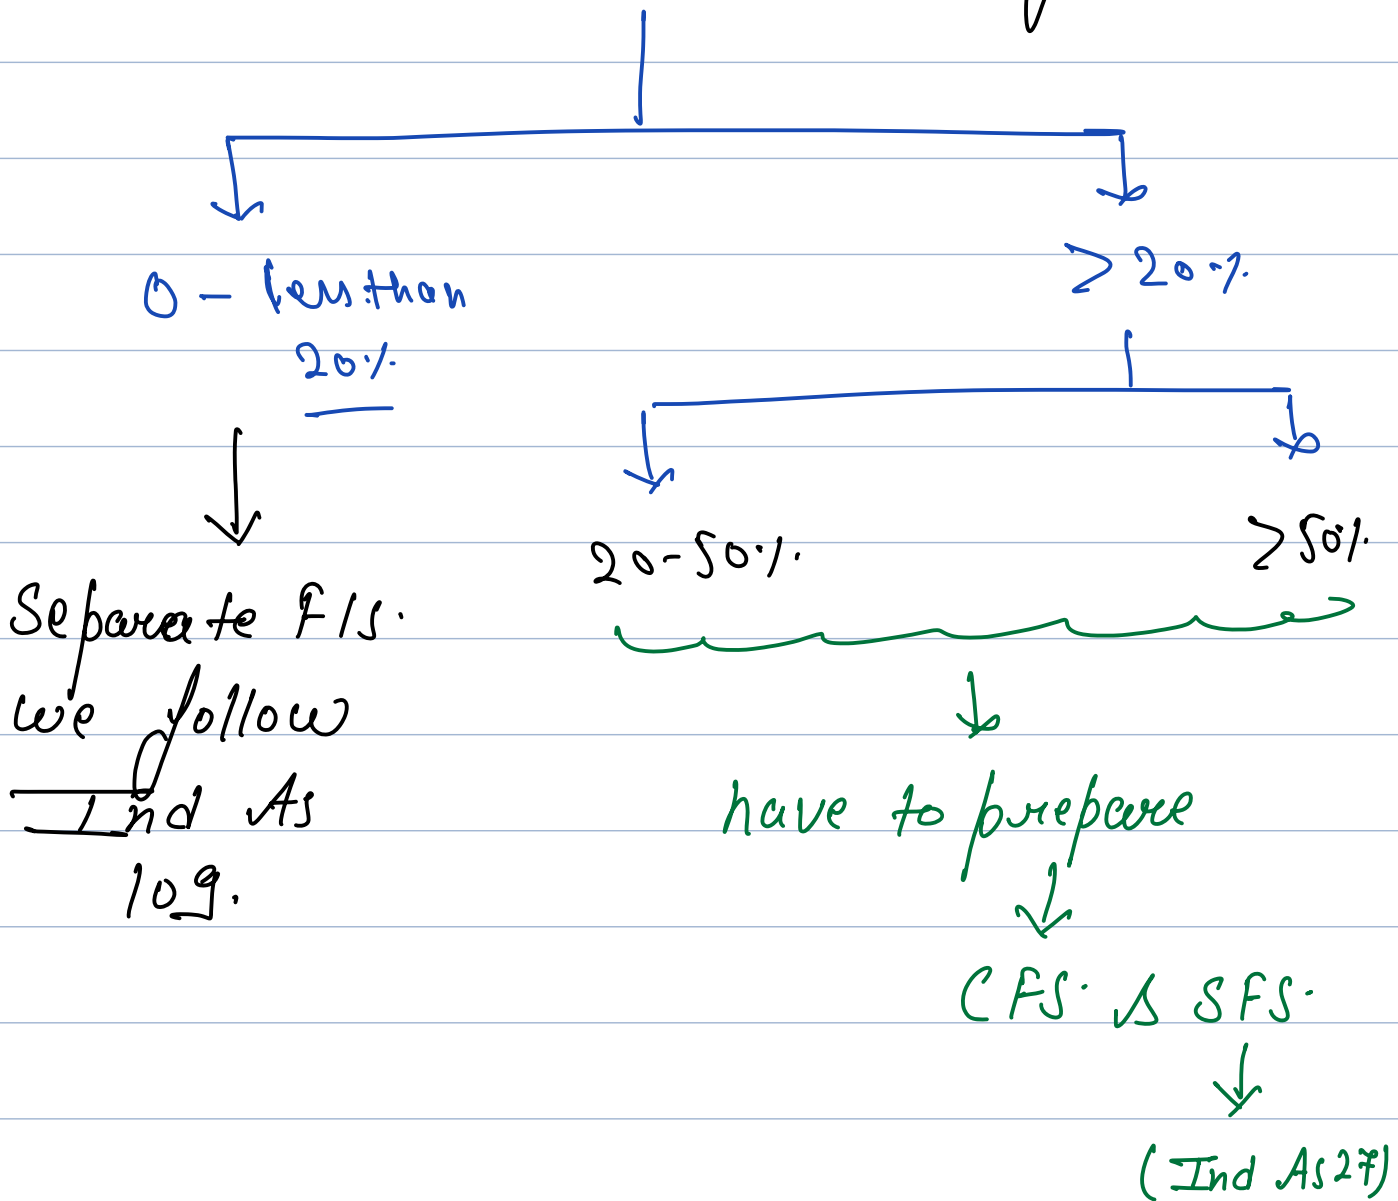 0 - less than
20%
> 20%
20-50%.
> 50%.
Separate F/s.
we follow
Ind As
109.
have to prepare
CFS. & SFS.
(Ind As 27)